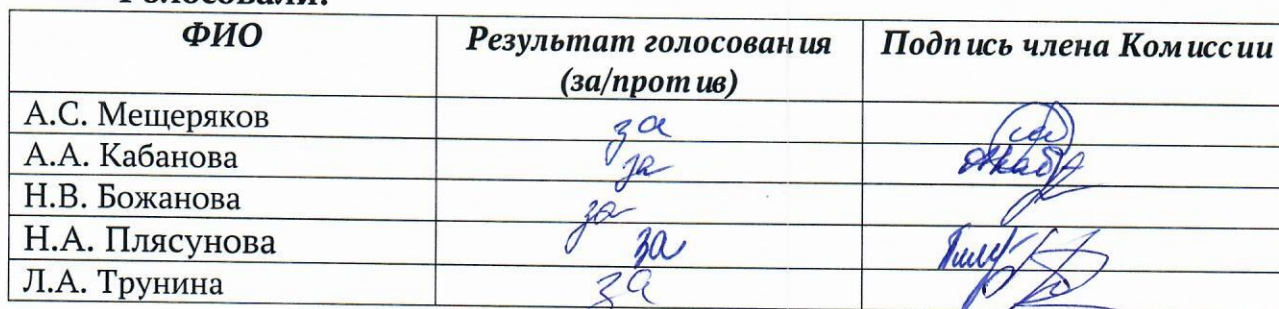 Голосовали:
ФИО Результат голосования (за/против) Подпись члена Комиссии
А.С. Мещеряков за
А.А. Кабанова за
Н.В. Божанова за
Н.А. Плясунова за
Л.А. Трунина за